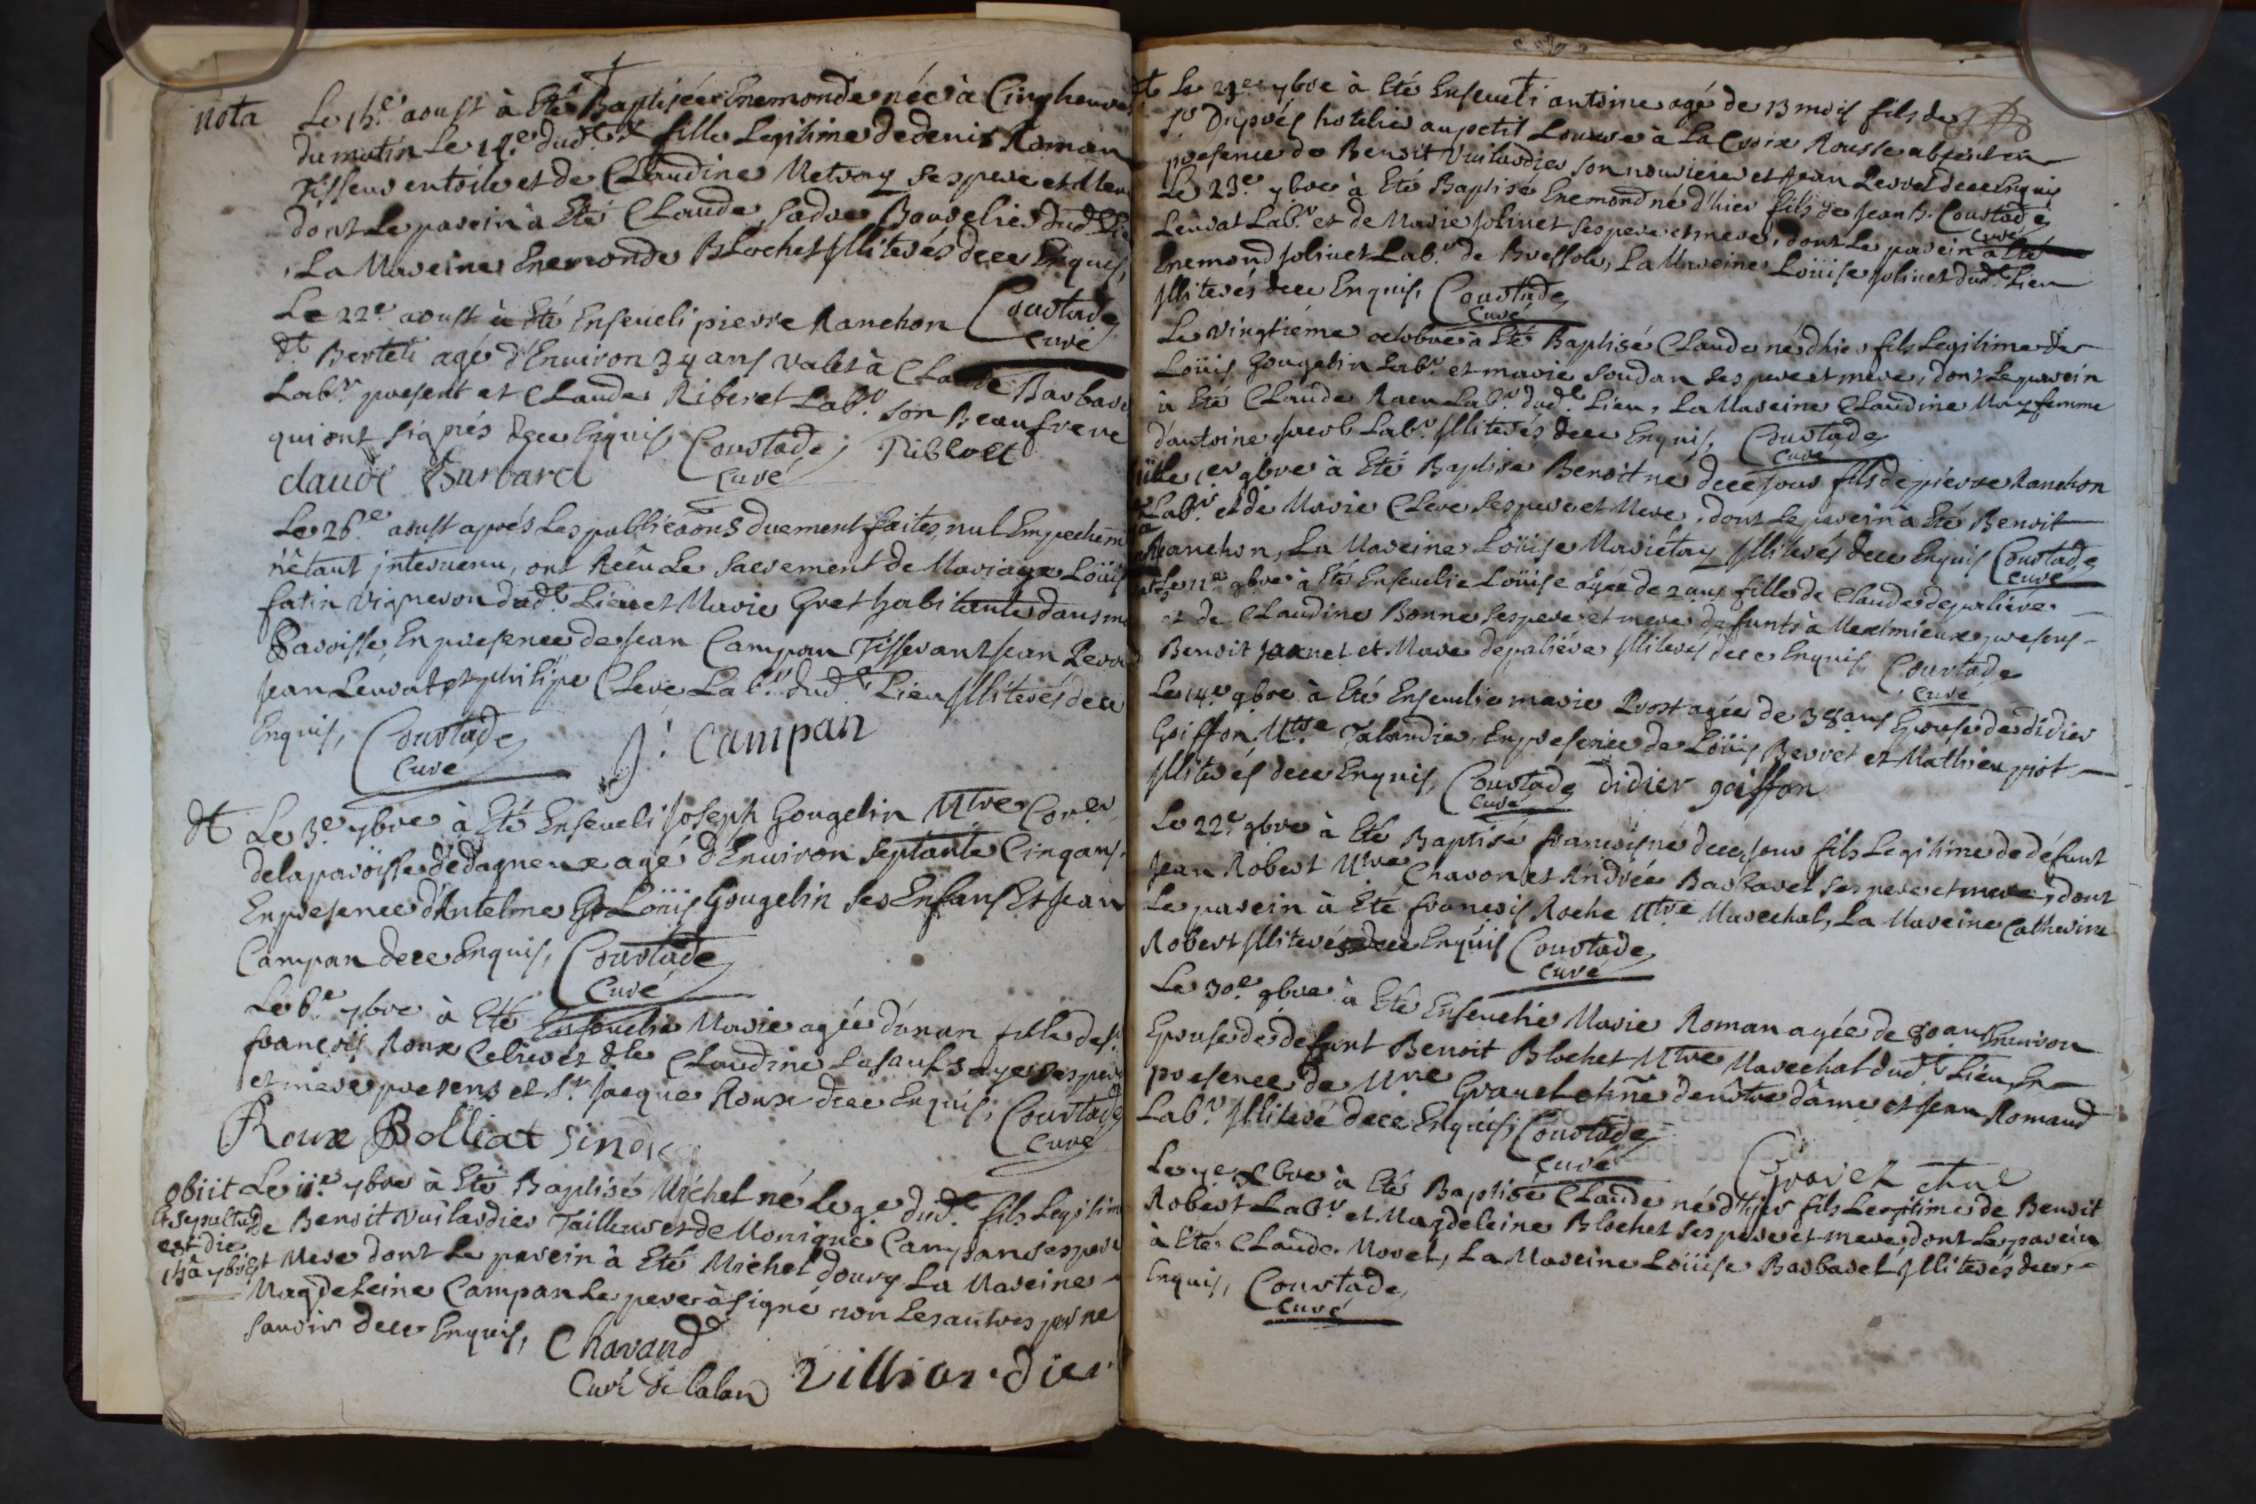 nota
Le 15.e aoust à Eté Baptisée Enemonde née à Cinq heures
du matin Le 14.e dud.t fille Legitime de denis Roman
Tisseur en toile et de Claudine Metray ses pere et Mere
dont Le parein à Eté Claude Sadre dud.t Lie
La Mareine Enemonde Blochet Jlliterés de ce Enquis,
Coustade
Curé
Le 22.e aoust à Eté Enseueli pierre Ranchon
dt Berteli agé d'Enuiron 34 ans valet à Claude Barbare
Lab.r present et Claude Riberet Lab.r son Beaufrere
qui ont signés de ce Enquis Coustade Riblout
Curé
claude Barbaret
Le 26.e aoust aprés Les publicaons duement faites, nul Empechem
n'êtant jnteruenu, ont Reçu Le sacrement de Mariage Loüis
fatin vigneron dud.t Lieu et Marie Gret habitante dans ma
Paroisse, En presence de Jean Campan Tisserant Jean
Jean Leurat et philipe Clere Lab.rs dud.t Lieu Jlliterés de ce
Enquis, Coustade
Curé
J. Campan
dt
Le 3.e 7bre à Eté Enseueli Joseph Gougelin M.tre Cor.er
de la paroisse de dagneux agé d'Enuiron septante Cinq ans,
En presence d'Antelme Et Loüis Gougelin ses Enfans Et Jean
Campan de ce Enquis, Coustade
Curé
Le 6.e 7bre à Eté Enseuelie Marie agée d'un an fille de s.r
françois Roux et d.lle Claudine ses pere
et mere presens et S.r Jacque Roux de ce Enquis, Coustade
Curé
Roux Bolliat sindic
obiit
et sepultus
est die
15a 7bris
Le 11.e 7bre à Eté Baptisé Michel né Le 9e dud.t fils Legitim
de Benoit vuilardier Tailleur et de Monique Campan ses pere
et Mere dont Le parein à Eté Michel doury La Mareine
Magdeleine Campan Le pere à signé non Les autres pour ne
sauoir de ce Enquis, Chavand
Curé de balan villiardier
dt Le 21.e 7bre à Eté Enseueli antoine agé de 13 mois fils de
s.r Duprés hotelier au petit Louure à La Croix Rousse absent en
presence de Benoit Vuilardier son nouricier et Jean de ce Enquis
Coustade
Curé
Le 23.e 7bre à Eté Baptisé Enemond né d'hier fils de Jean B.
Leurat Lab.r et de Marie Joliuet ses pere et mere, dont Le parein à Eté
Enemond Joliuet Lab.r de Bressole, La Mareine Loüise Joliuet dud.t Lieu
Jlliterés de ce Enquis, Coustade
Curé
Le vingtiéme octobre à Eté Baptisé Claude né d'hier fils Legitime de
Loüis Gougelin Lab.r et marie Soudan ses pere et mere, dont Le parein
à Eté Claude Lab.r dud.t Lieu, La Mareine Claudine May femme
d'antoine Jacob Lab.r Jlliterés de ce Enquis, Coustade
Curé
Le 1er 9bre à Eté Baptise Benoit né de ce jour fils de pierre Ranchon
Lab.r et de Marie Clere ses pere et Mere, dont Le parein à Eté Benoit
Ranchon, La Mareine Loüise Mariétay Jlliterés de ce Enquis Coustade
Curé
Le 11.e 9bre à Eté Enseuelie Loüise agée de 2 ans fille de Claude depaliére
et de Claudine Bonne ses pere et mere defunts à Meximieux presens
Benoit Jannet et Marc depaliére Jlliterés de ce Enquis, Coustade
Curé
Le 14.e 9bre à Eté Enseuelie marie Prost agée de 38 ans Epouse de didier
Goiffon M.tre Talandier, En presence de Loüis Berret et Mathieu piot
Jlliterés de ce Enquis, Coustade didier goiffon
Curé
Le 22.e 9bre à Eté Baptisé françois né de ce jour fils Legitime de défunt
Jean Robert M.tre Charon et Andrée Barbaret ses pere et mere, dont
Le parein à Eté françois Roche M.tre Marechal, La Mareine Catherine
Robert Jlliterés de ce Enquis Coustade
Curé
Le 30.e 9bre à Eté Enseuelie Marie Roman agée de 80 ans Enuiron
Epouse de défunt Benoit Blochet M.tre Marechal dud.t Lieu, En
presence de M.re Grauel chñe de nôtre dâme et Jean Romand
Lab.r Jlliteré de ce Enquis, Coustade
Curé
Gravel chne
Le 7e Xbre à Eté Baptisé Claude né d'hyer fils Legitime de Benoit
Robert Lab.r et Magdeleine Blochet ses pere et mere, dont Le parein
à Eté Claude Moret, La Mareine Loüise Barbaret Jlliterés de ce
Enquis, Coustade
Curé